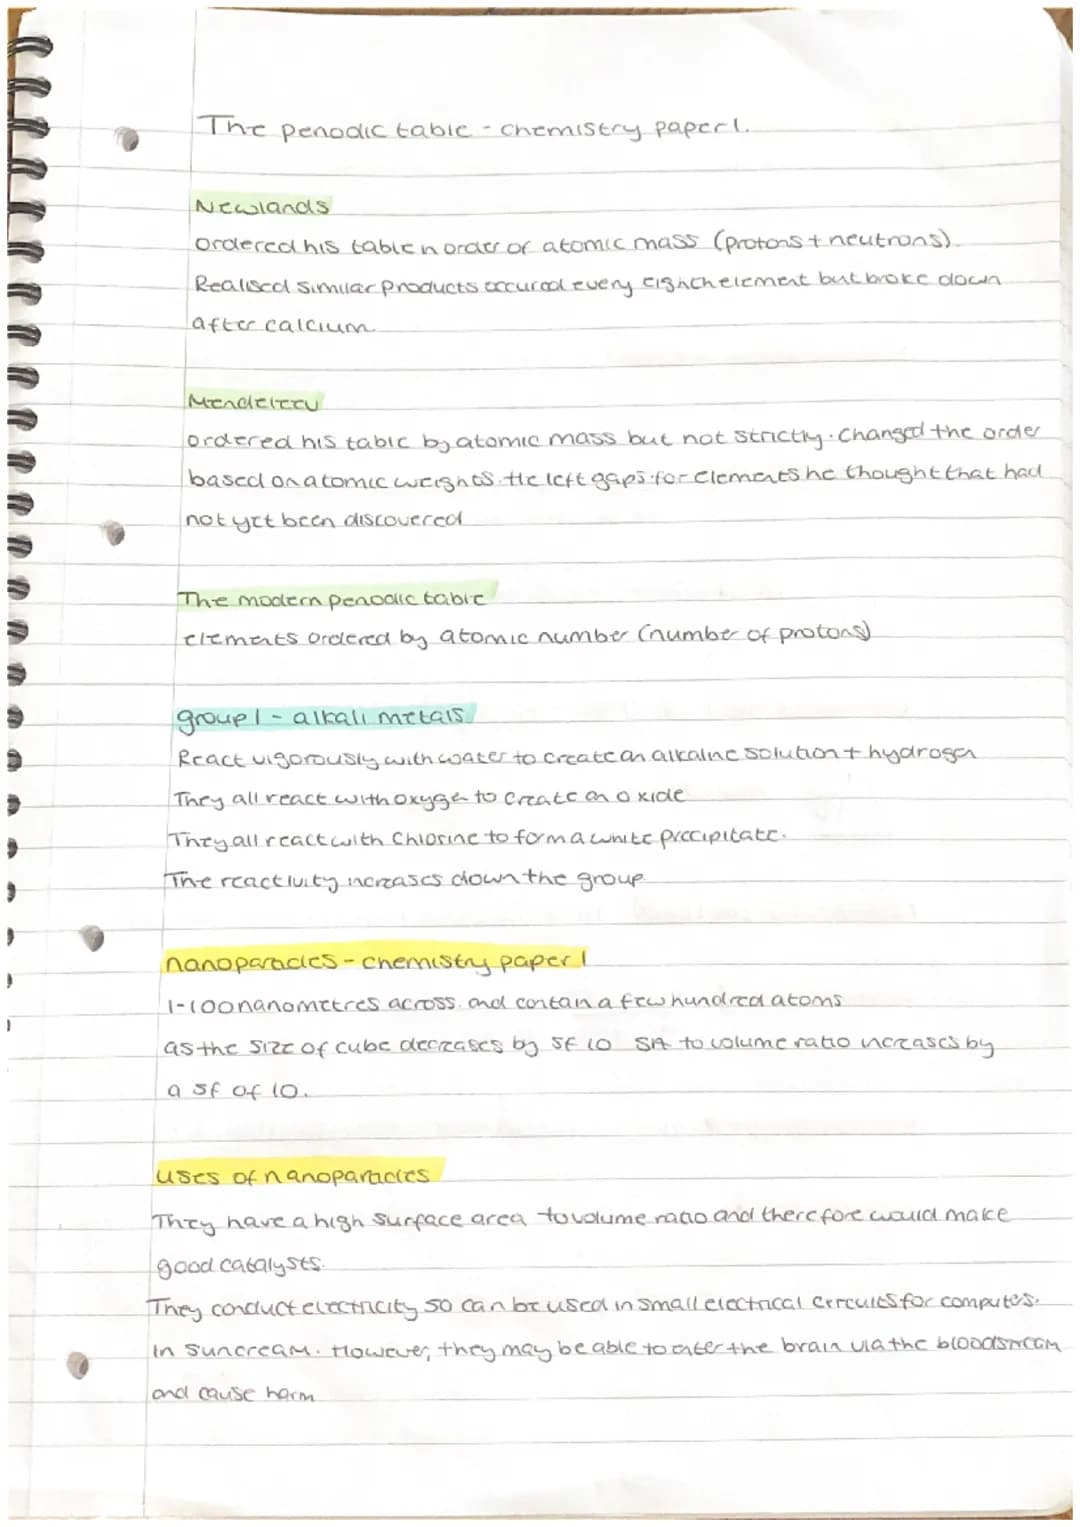 The periodic table - chemistry paper 1.
Newlands
ordered his table in order of atomic mass (protons + neutrons).
Realised similar products occured every eighth element but broke down
after calcium.
Mendeleev
ordered his table by atomic mass but not strictly. Changed the order
based on atomic weights. He left gaps for elements he thought that had
not yet been discovered
The modern periodic table
elements ordered by atomic number (number of protons)
group 1 - alkali metals
React vigorously with water to create an alkaline solution + hydrogen
They all react with oxygen to create an oxide
They all react with chlorine to form a white precipitate.
The reactivity increases down the group
nanoparticles - chemistry paper 1
1-100 nanometres across and contain a few hundred atoms
as the size of cube decreases by SF 10 SA to volume ratio increases by
a SF of 10.
uses of nanoparticles
They have a high surface area to volume ratio and therefore would make
good catalysts.
They conduct electricity so can be used in small electrical circuits for computers.
In suncream. However, they may be able to enter the brain via the bloodstream
and cause harm